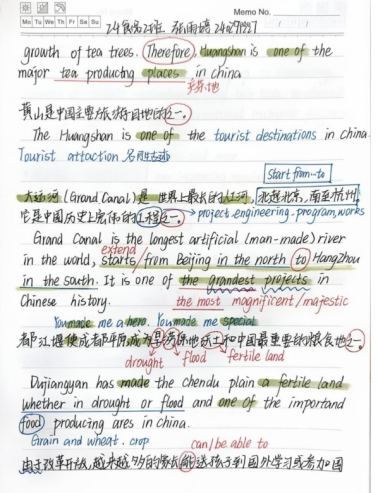 Memo No.
Mo Tu We Th Fr Sa Su
growth of tea trees. Therefore, Huangshan is one of the
major tea producing places in china
黄山是中国主要旅游目的地之一。
The Huangshan is one of the tourist destinations in China
Tourist attaction 名胜古迹
start from--to
大运河(Grand Canal)是世界上最长的人工河,北起北京,南至杭州。
它是中国历史上宏伟的工程之一。→project.engineering.program.works
Grand Canal is the longest artificial (man-made) river
extend
in the world, starts from Beijing in the north to Hangzhou
in the south. It is one of the grandest projects in
Chinese history. the most magnificent/majestic
You made me a hero. You made me special
drought flood fertile land
Dujiangyan has made the chendu plain a fertile land
whether in drought or flood and one of the importand
food producing ares in china.
Grain and wheat. crop can/be able to
由于改革开放,越来越多的家长能送孩子到国外学习或参加国